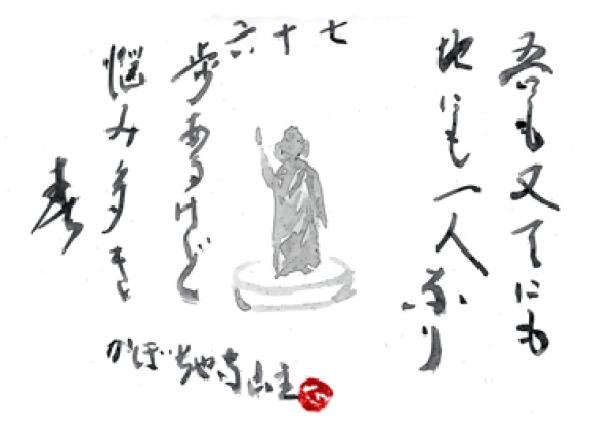 吾も又天にも
地にも一人なり
六十七
歩あるけど
悩み多き
春
かぼちや寺山主